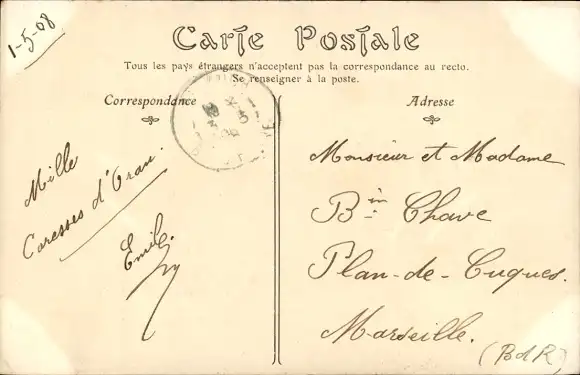 1-5-08
Carte Postale
Tous les pays étrangers n'acceptent pas la correspondance au recto.
Se renseigner à la poste.
Correspondance
Mille
Caresses d'Oran.
Emile
Adresse
Monsieur et Madame
Bin Chave
Plan-de-Cuques.
Marseille.
(BdR)